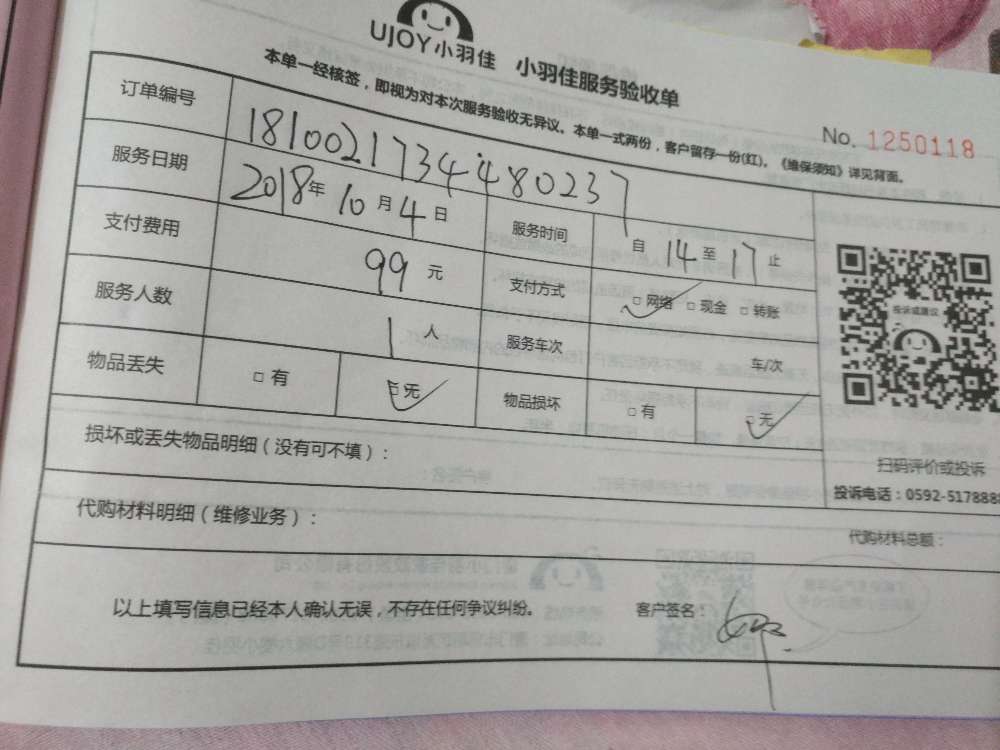 UJOY小羽佳 小羽佳服务验收单
本单一经核签，即视为对本次服务验收无异议。本单一式两份，客户留存一份(红)。《维保须知》详见背面。
No. 1250118
订单编号 181002173448​0237
服务日期 2018年10月4日 服务时间 自14至17止
支付费用 99元 支付方式 □网络 □现金 □转账
服务人数 1人 服务车次 车/次
物品丢失 □有 □无 物品损坏 □有 □无
投诉或建议
扫码评价或投诉
投诉电话：0592-5178888
损坏或丢失物品明细（没有可不填）：
代购材料明细（维修业务）： 代购材料总额：
以上填写信息已经本人确认无误，不存在任何争议纠纷。 客户签名：